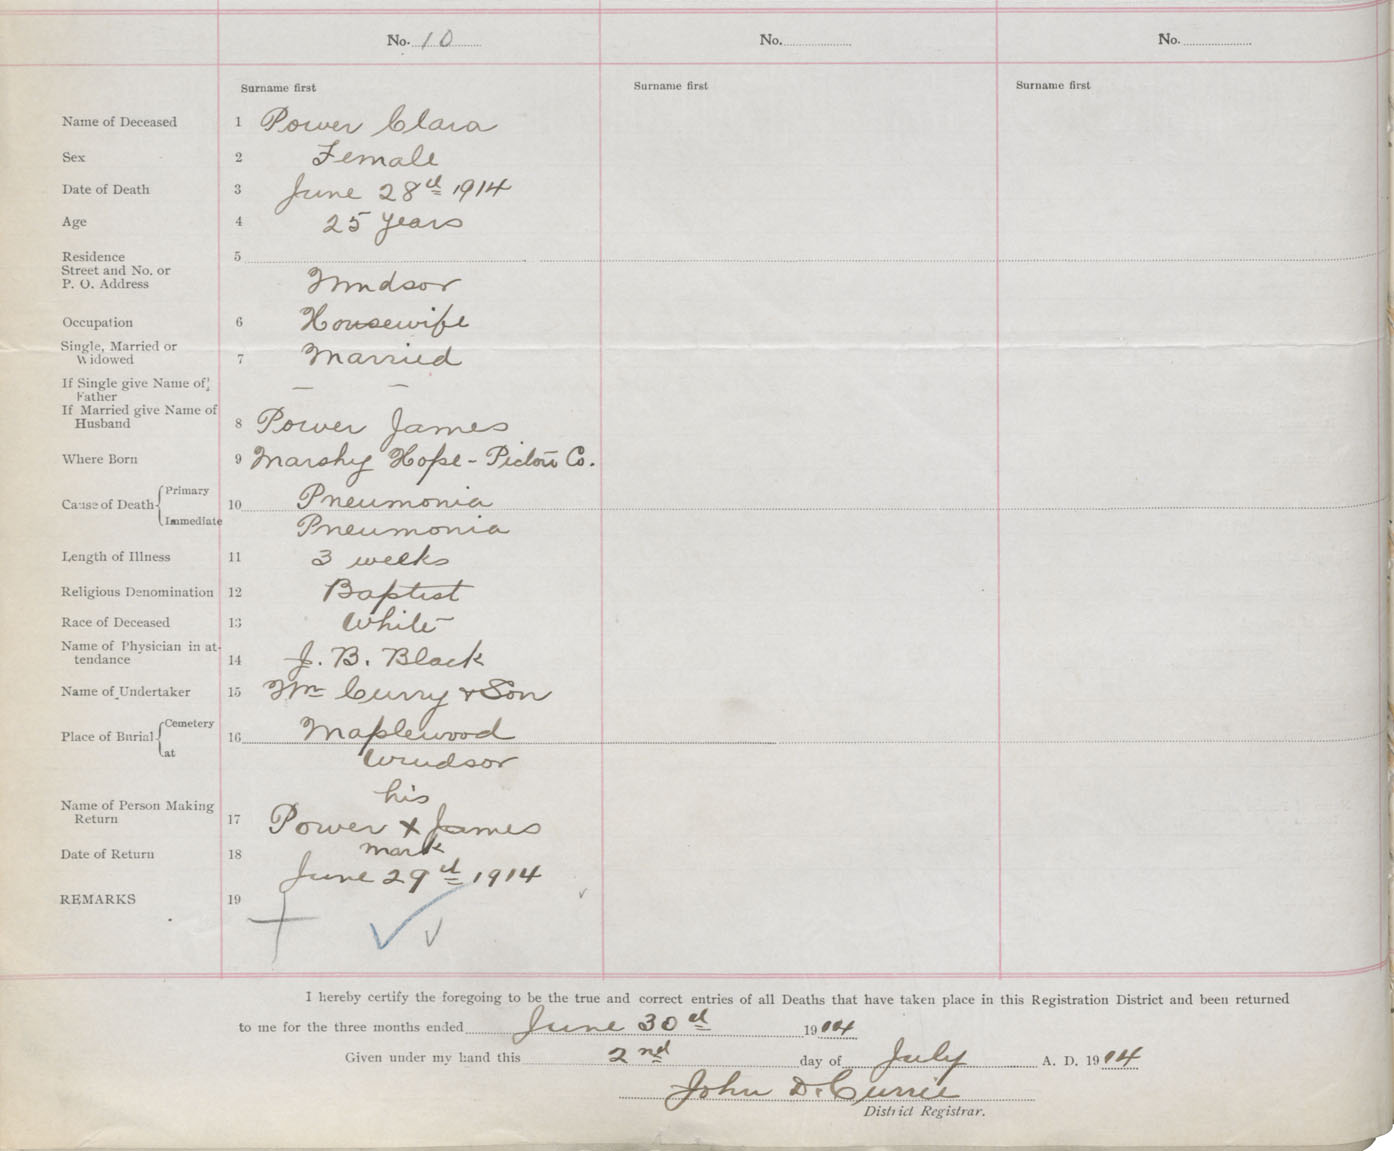 No. 10 No. No.
Surname first Surname first Surname first
Name of Deceased 1 Power Clara
Sex 2 Female
Date of Death 3 June 28th 1914
Age 4 25 years
Residence 5
Street and No. or
P. O. Address Windsor
Occupation 6 Housewife
Single, Married or
Widowed 7 Married
If Single give Name of — —
Father
If Married give Name of
Husband 8 Power James
Where Born 9 Marshy Hope - Pictou Co.
Cause of Death Primary 10 Pneumonia
Immediate Pneumonia
Length of Illness 11 3 weeks
Religious Denomination 12 Baptist
Race of Deceased 13 White
Name of Physician in at-
tendance 14 J. B. Black
Name of Undertaker 15 Wm Curry & Son
Place of Burial Cemetery 16 Maplewood
at Windsor
his
Name of Person Making
Return 17 Power X James
mark
Date of Return 18 June 29th 1914
REMARKS 19
I hereby certify the foregoing to be the true and correct entries of all Deaths that have taken place in this Registration District and been returned
to me for the three months ended June 30th 1914
Given under my hand this 2nd day of July A. D. 1914
John D. Currie
District Registrar.